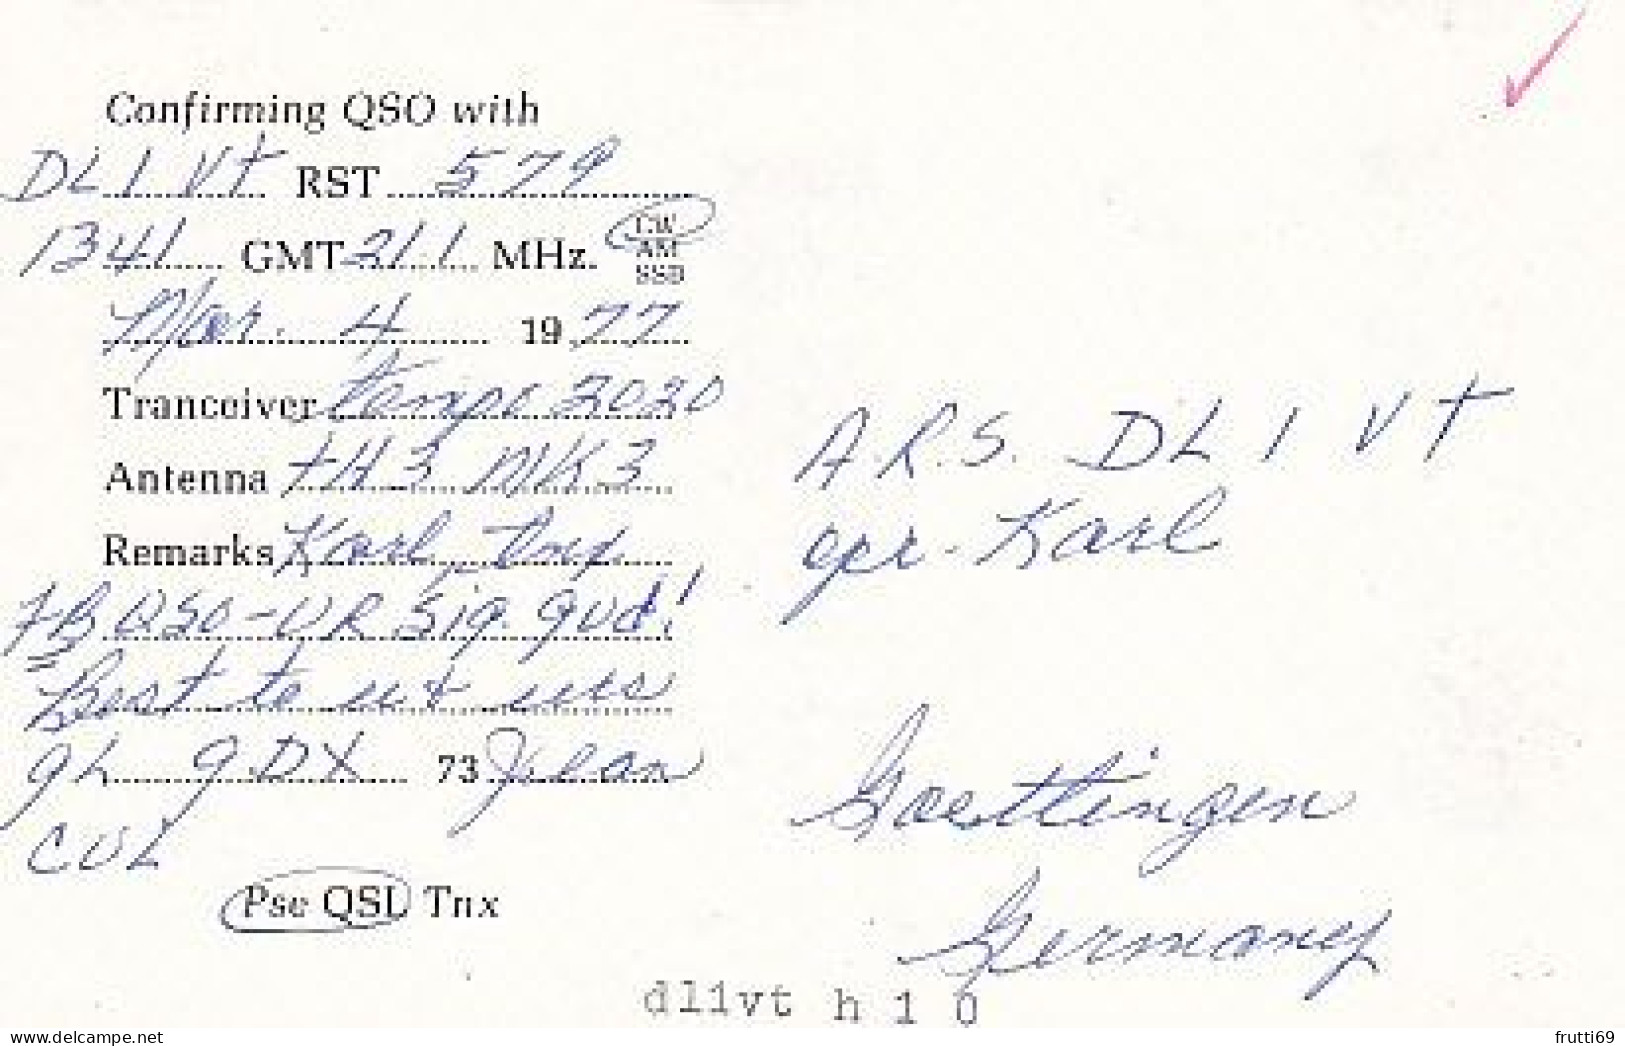 Confirming QSO with
DL1VT RST 579
1341 GMT 21.1 MHz. CW
AM
SSB
Mar. 4 1977
Tranceiver Tempo 2020
Antenna TH3 MK3
Remarks Karl Tnx
FB QSO-UR Sig. gud!
Best to u + urs
gL gDX 73 Jean
CUL
Pse QSL Tnx
A.R.S. DL1VT
opr. Karl
Goettingen
Germany
dl1vt h 1 0
www.delcampe.net
frutti69